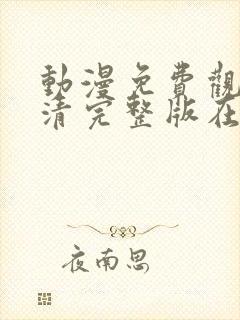 動漫免費觀
清完整版在
夜南思